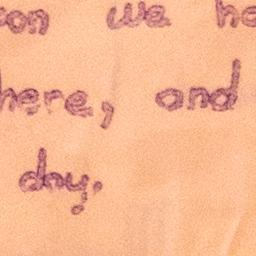 on we he
here, and
day,